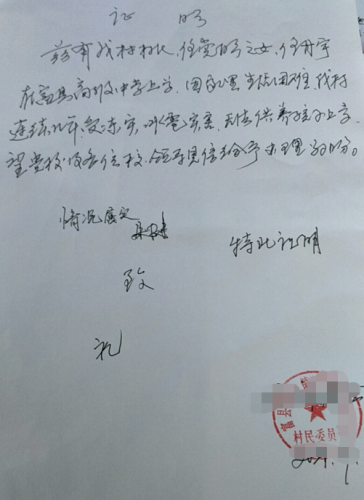 证 明
兹有我村村民,任宪明之女,任丹宇
在富县高级中学上学,因家里生活困难我村
连续几年受冻灾、冰雹灾害,无法供养孩子上学,
望贵校收各位校领导见信给予办理为盼。
情况属实
特此证明
致
礼
富县
村民委员